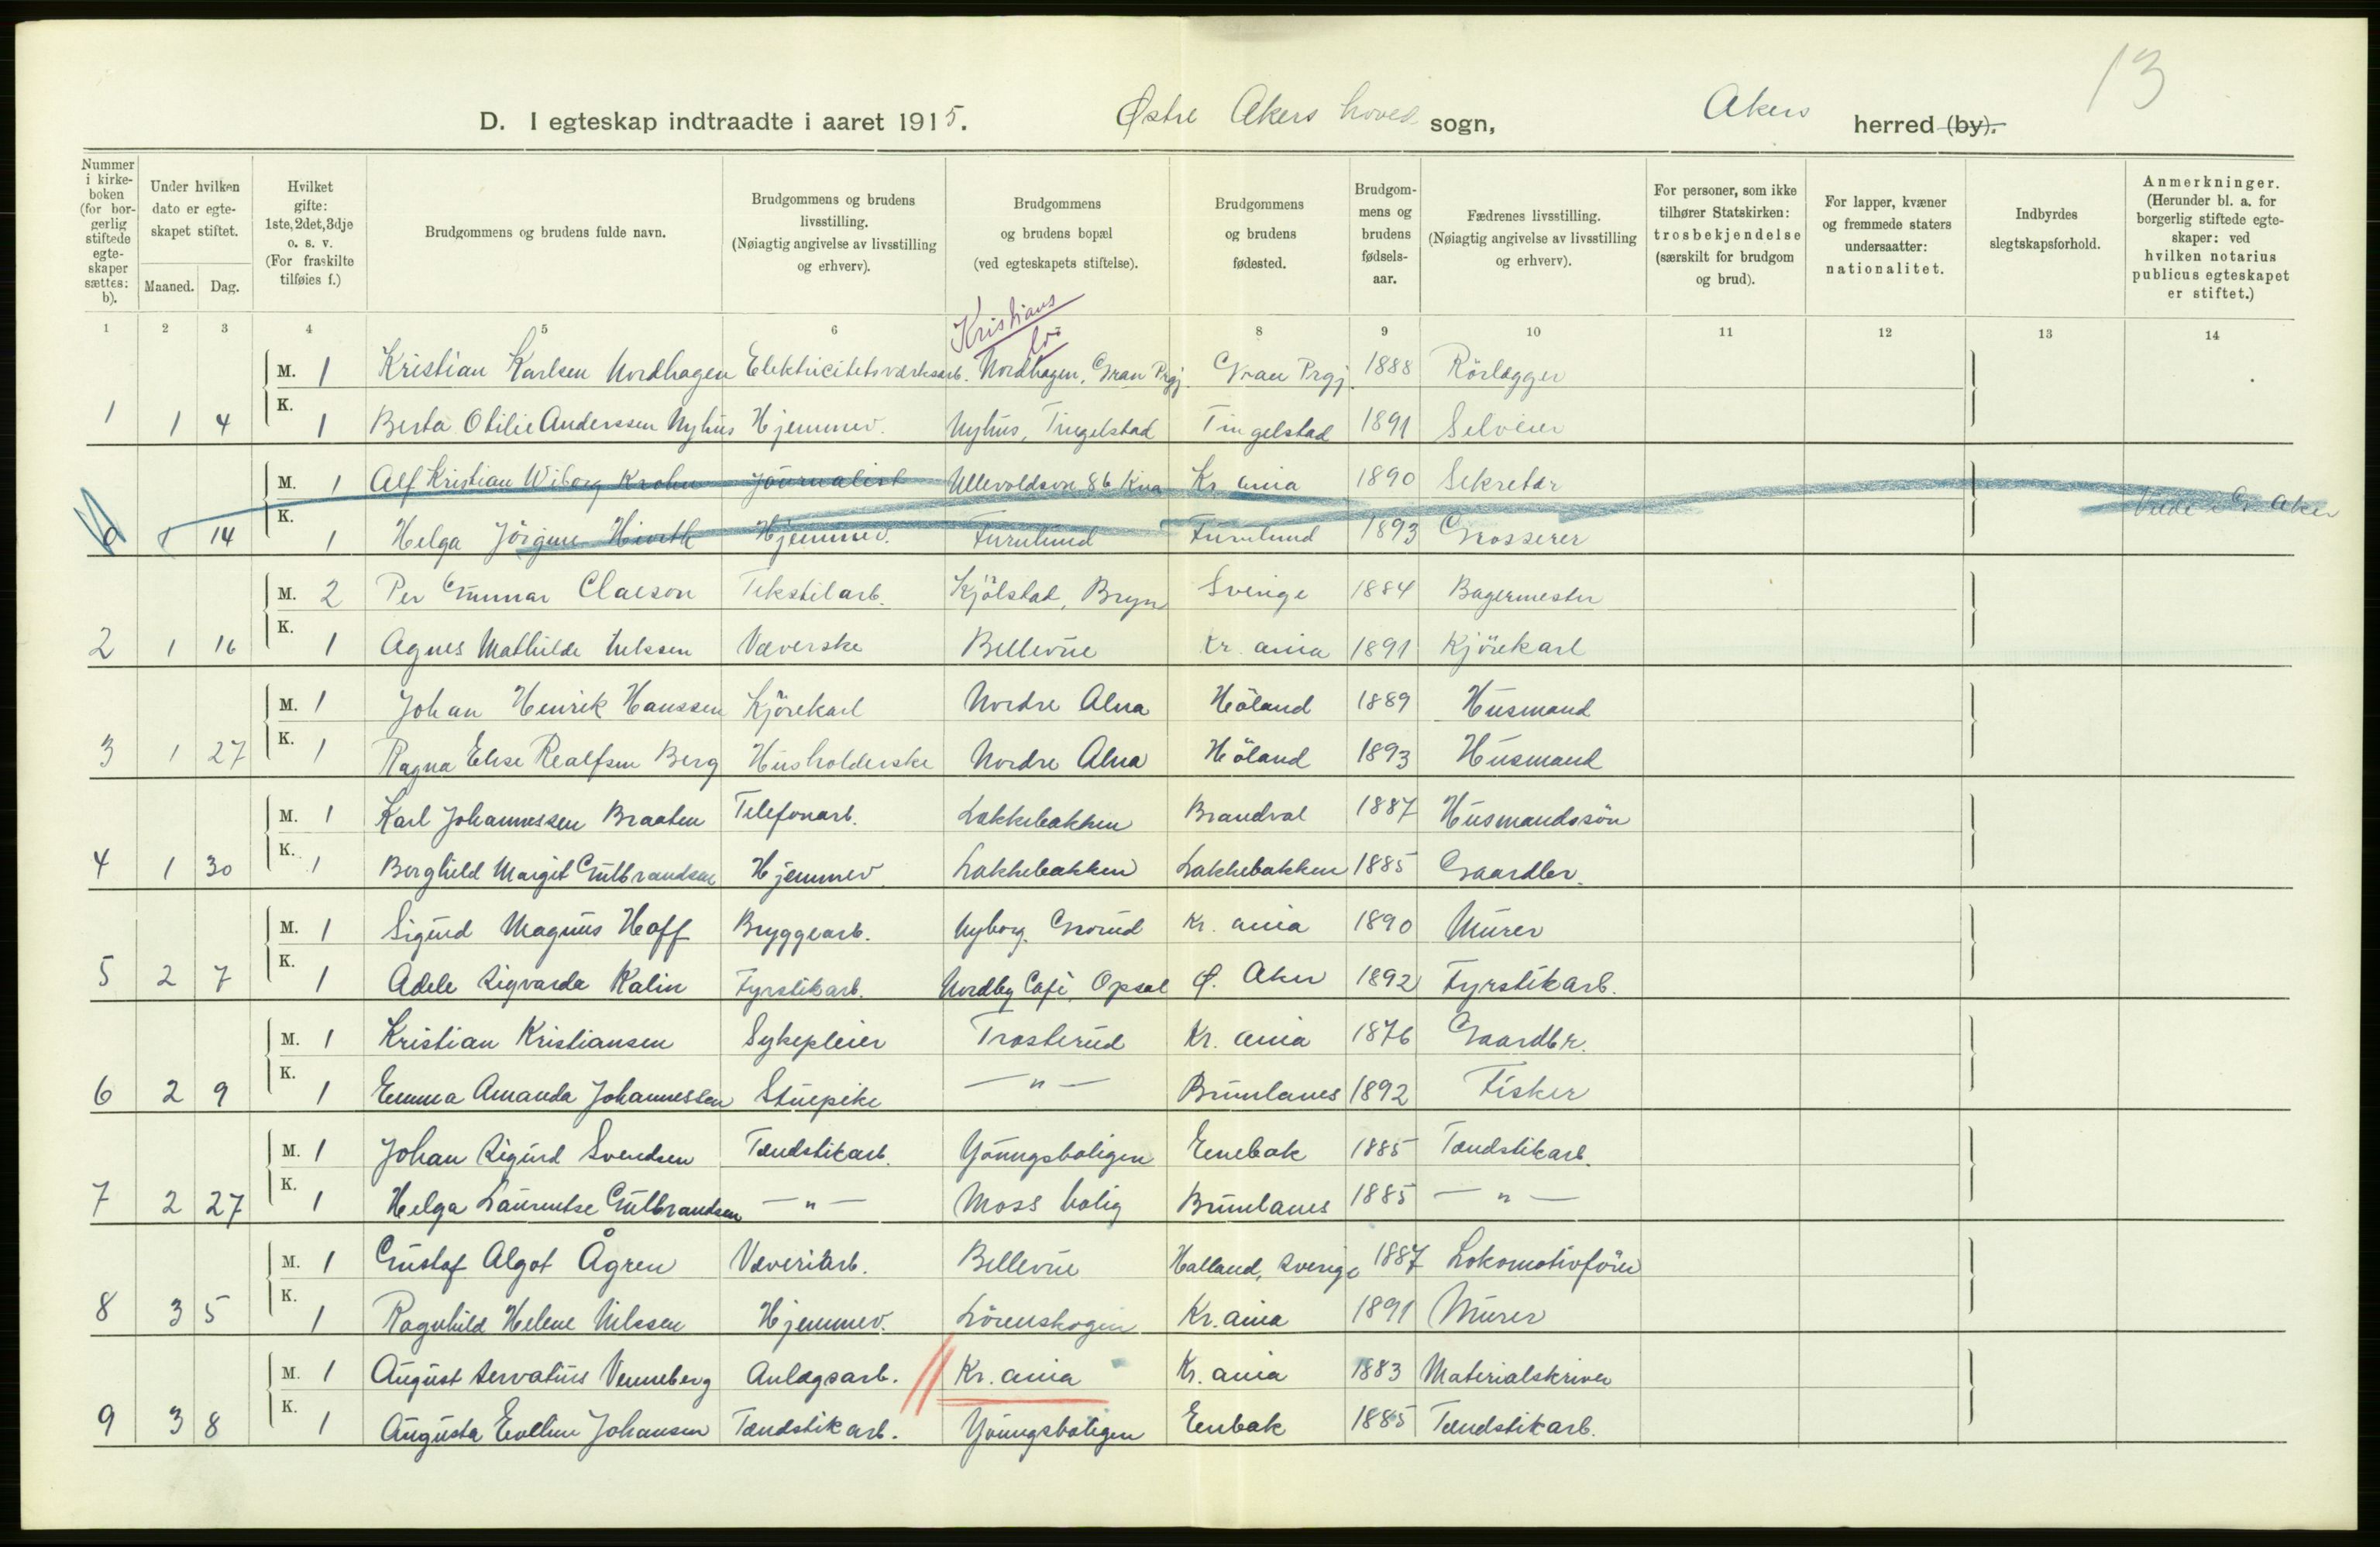 13
D. I egteskap indtraadte i aaret 1915. Østre Akers hoved sogn, Akers herred (by).
Nummer i kirkeboken (for borgerlig stiftede egteskaper sættes: b).
Under hvilken dato er egteskapet stiftet.
Maaned. Dag.
Hvilket gifte: 1ste, 2det, 3dje o. s. v. (For fraskilte tilføies f.)
Brudgommens og brudens fulde navn.
Brudgommens og brudens livsstilling. (Nøiagtig angivelse av livsstilling og erhverv).
Brudgommens og brudens bopæl (ved egteskapets stiftelse).
Brudgommens og brudens fødested.
Brudgommens og brudens fødselsaar.
Fædrenes livsstilling. (Nøiagtig angivelse av livsstilling og erhverv).
For personer, som ikke tilhører Statskirken: trosbekjendelse (særskilt for brudgom og brud).
For lapper, kvæner og fremmede staters undersaatter: nationalitet.
Indbyrdes slegtskapsforhold.
Anmerkninger. (Herunder bl. a. for borgerlig stiftede egteskaper: ved hvilken notarius publicus egteskapet er stiftet.)
1 2 3 4 5 6 8 9 10 11 12 13 14
Kristians
M. 1 Kristian Karlsen Nordhagen Elektricitetsværksarb. Nordhagen, Gran Prgj. Gran Prgj. 1888 Rörlægger
1 1 4 K. 1 Berta Otilie Anderssen Nyhus Hjemmev. Nyhus, Tingelstad Tingelstad 1891 Selveier
M. 1 Alf Kristian Wiborg Krohn Journalist Ullevoldsvn 86 Kria Kr. ania 1890 Sekretær
14 K. 1 Helga Jörgine Hiorth Hjemmev. Furulund Furulund 1893 Grosserer Aker
M. 2 Per Gunnar Claeson Tekstilarb. Kjölstad, Bryn Sverige 1884 Bagermester
2 1 16 K. 1 Agnes Mathilde Nilssen Væverske Bellevue Kr. ania 1891 Kjörekarl
M. 1 Johan Henrik Hanssen Kjörekarl Nordre Alna Höland 1889 Husmand
3 1 27 K. 1 Ragna Elise Realfsen Berg Husholderske Nordre Alna Höland 1893 Husmand
M. 1 Karl Johannessen Braaten Telefonarb. Lakkebakken Brandval 1887 Husmandssön
4 1 30 K. 1 Borghild Margit Gulbrandsen Hjemmev. Lakkebakken Lakkebakken 1885 Gaardbr.
M. 1 Sigurd Magnus Hoff Bryggearb. Nyborg. Grorud Kr. ania 1890 Murer
5 2 7 K. 1 Adele Sigvarda Kalin Fyrstikarb. Nordby Café, Opsal Ø. Aker 1892 Fyrstikarb.
M. 1 Kristian Kristiansen Sykepleier Trosterud Kr. ania 1876 Gaardbr.
6 2 9 K. 1 Emma Amanda Johannessen Stuepike — " — Brunlanes 1892 Fisker
M. 1 Johan Sigurd Svendsen Tændstikarb. Youngsboligen Enebak 1885 Tændstikarb.
7 2 27 K. 1 Helga Laurentse Gulbrandsen — " — Moss bolig Brunlanes 1885 — " —
M. 1 Gustaf Algot Ågren Væveriarb. Bellevue Halland, Sverige 1887 Lokomotivförer
8 3 5 K. 1 Ragnhild Helene Nilssen Hjemmev. Lörenskogen Kr. ania 1891 Murer
M. 1 August Servatius Venneberg Anlægsarb. Kr. ania Kr. ania 1883 Materialskriver
9 3 8 K. 1 Augusta Eveline Johansen Tændstikarb. Youngsboligen Enebak 1885 Tændstikarb.